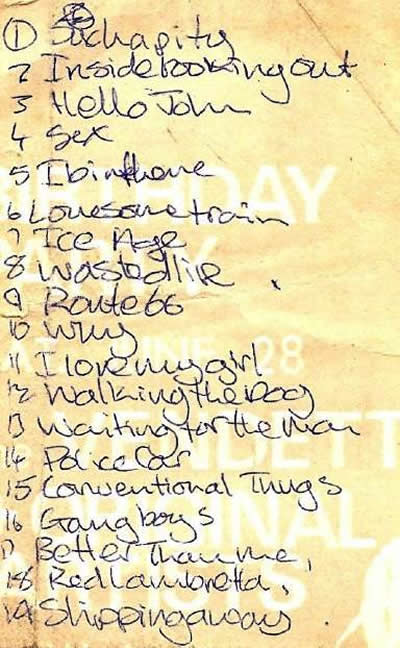 1 Suchapity
2 Insidelookingout
3 Hello John
4 Sex
5 Ibinthere
6 Lonesometrain
7 Ice Age
8 Wastedlife
9 Route 66
10 Why
11 I lovemygirl
12 WalkingtheDog
13 WaitingfortheMan
14 Police Car
15 Conventional Thugs
16 Gangboys
17 Better Than me,
18 Red Lambretta,
19 Slippingaway.
RTHDAY
28
VENDETT
ORIGINAL